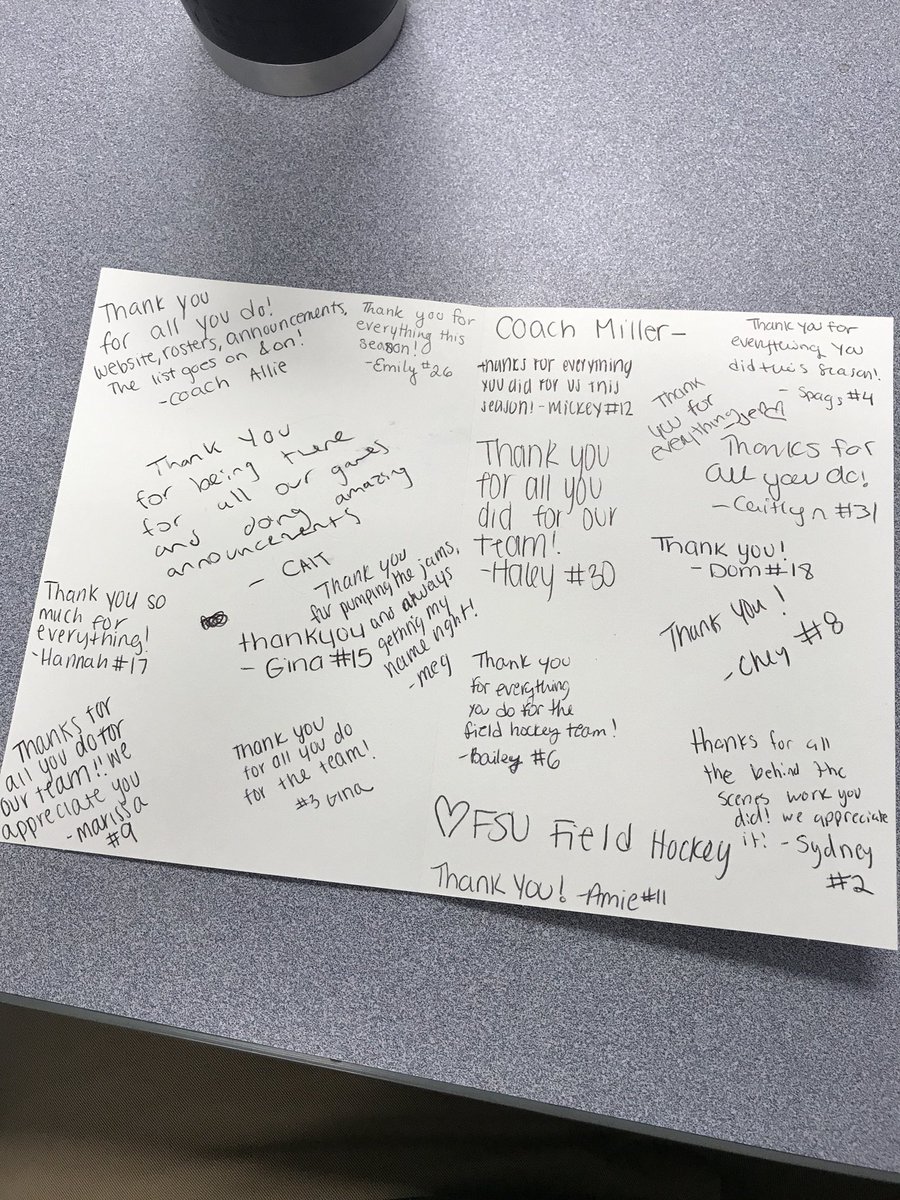 Thank you
for all you do!
website, rosters, announcements,
The list goes on & on!
- Coach Allie
Thank you for
everything this
season!
- Emily #26
Thank You
for being there
for all our games
and doing amazing
announcements
- CAIT
Thank you so
much for
everything!
- Hannah #17
thankyou
- Gina #15
Thank you
for pumping the jams,
and always
getting my
name right!
- meg
Thanks for
all you do for
our team!! we
appreciate you
- marissa
#9
Thank you
for all you do
for the team!
#3 Gina
Coach Miller -
thanks for everything
you did for us this
season! - Mickey #12
Thank you for
everything you
did this season!
- Spags #4
Thank
you for
everything
Thank you
for all you
did for our
team!
- Haley #30
Thanks for
all you do!
- Caitlyn #31
Thank you!
- Dom #18
Thank you!
- Chey #8
Thank you
for everything
you do for the
field hockey team!
- Bailey #6
thanks for all
the behind the
scenes work you
did! we appreciate
it! - Sydney
#2
♡ FSU Field Hockey
Thank you! - Amie #11